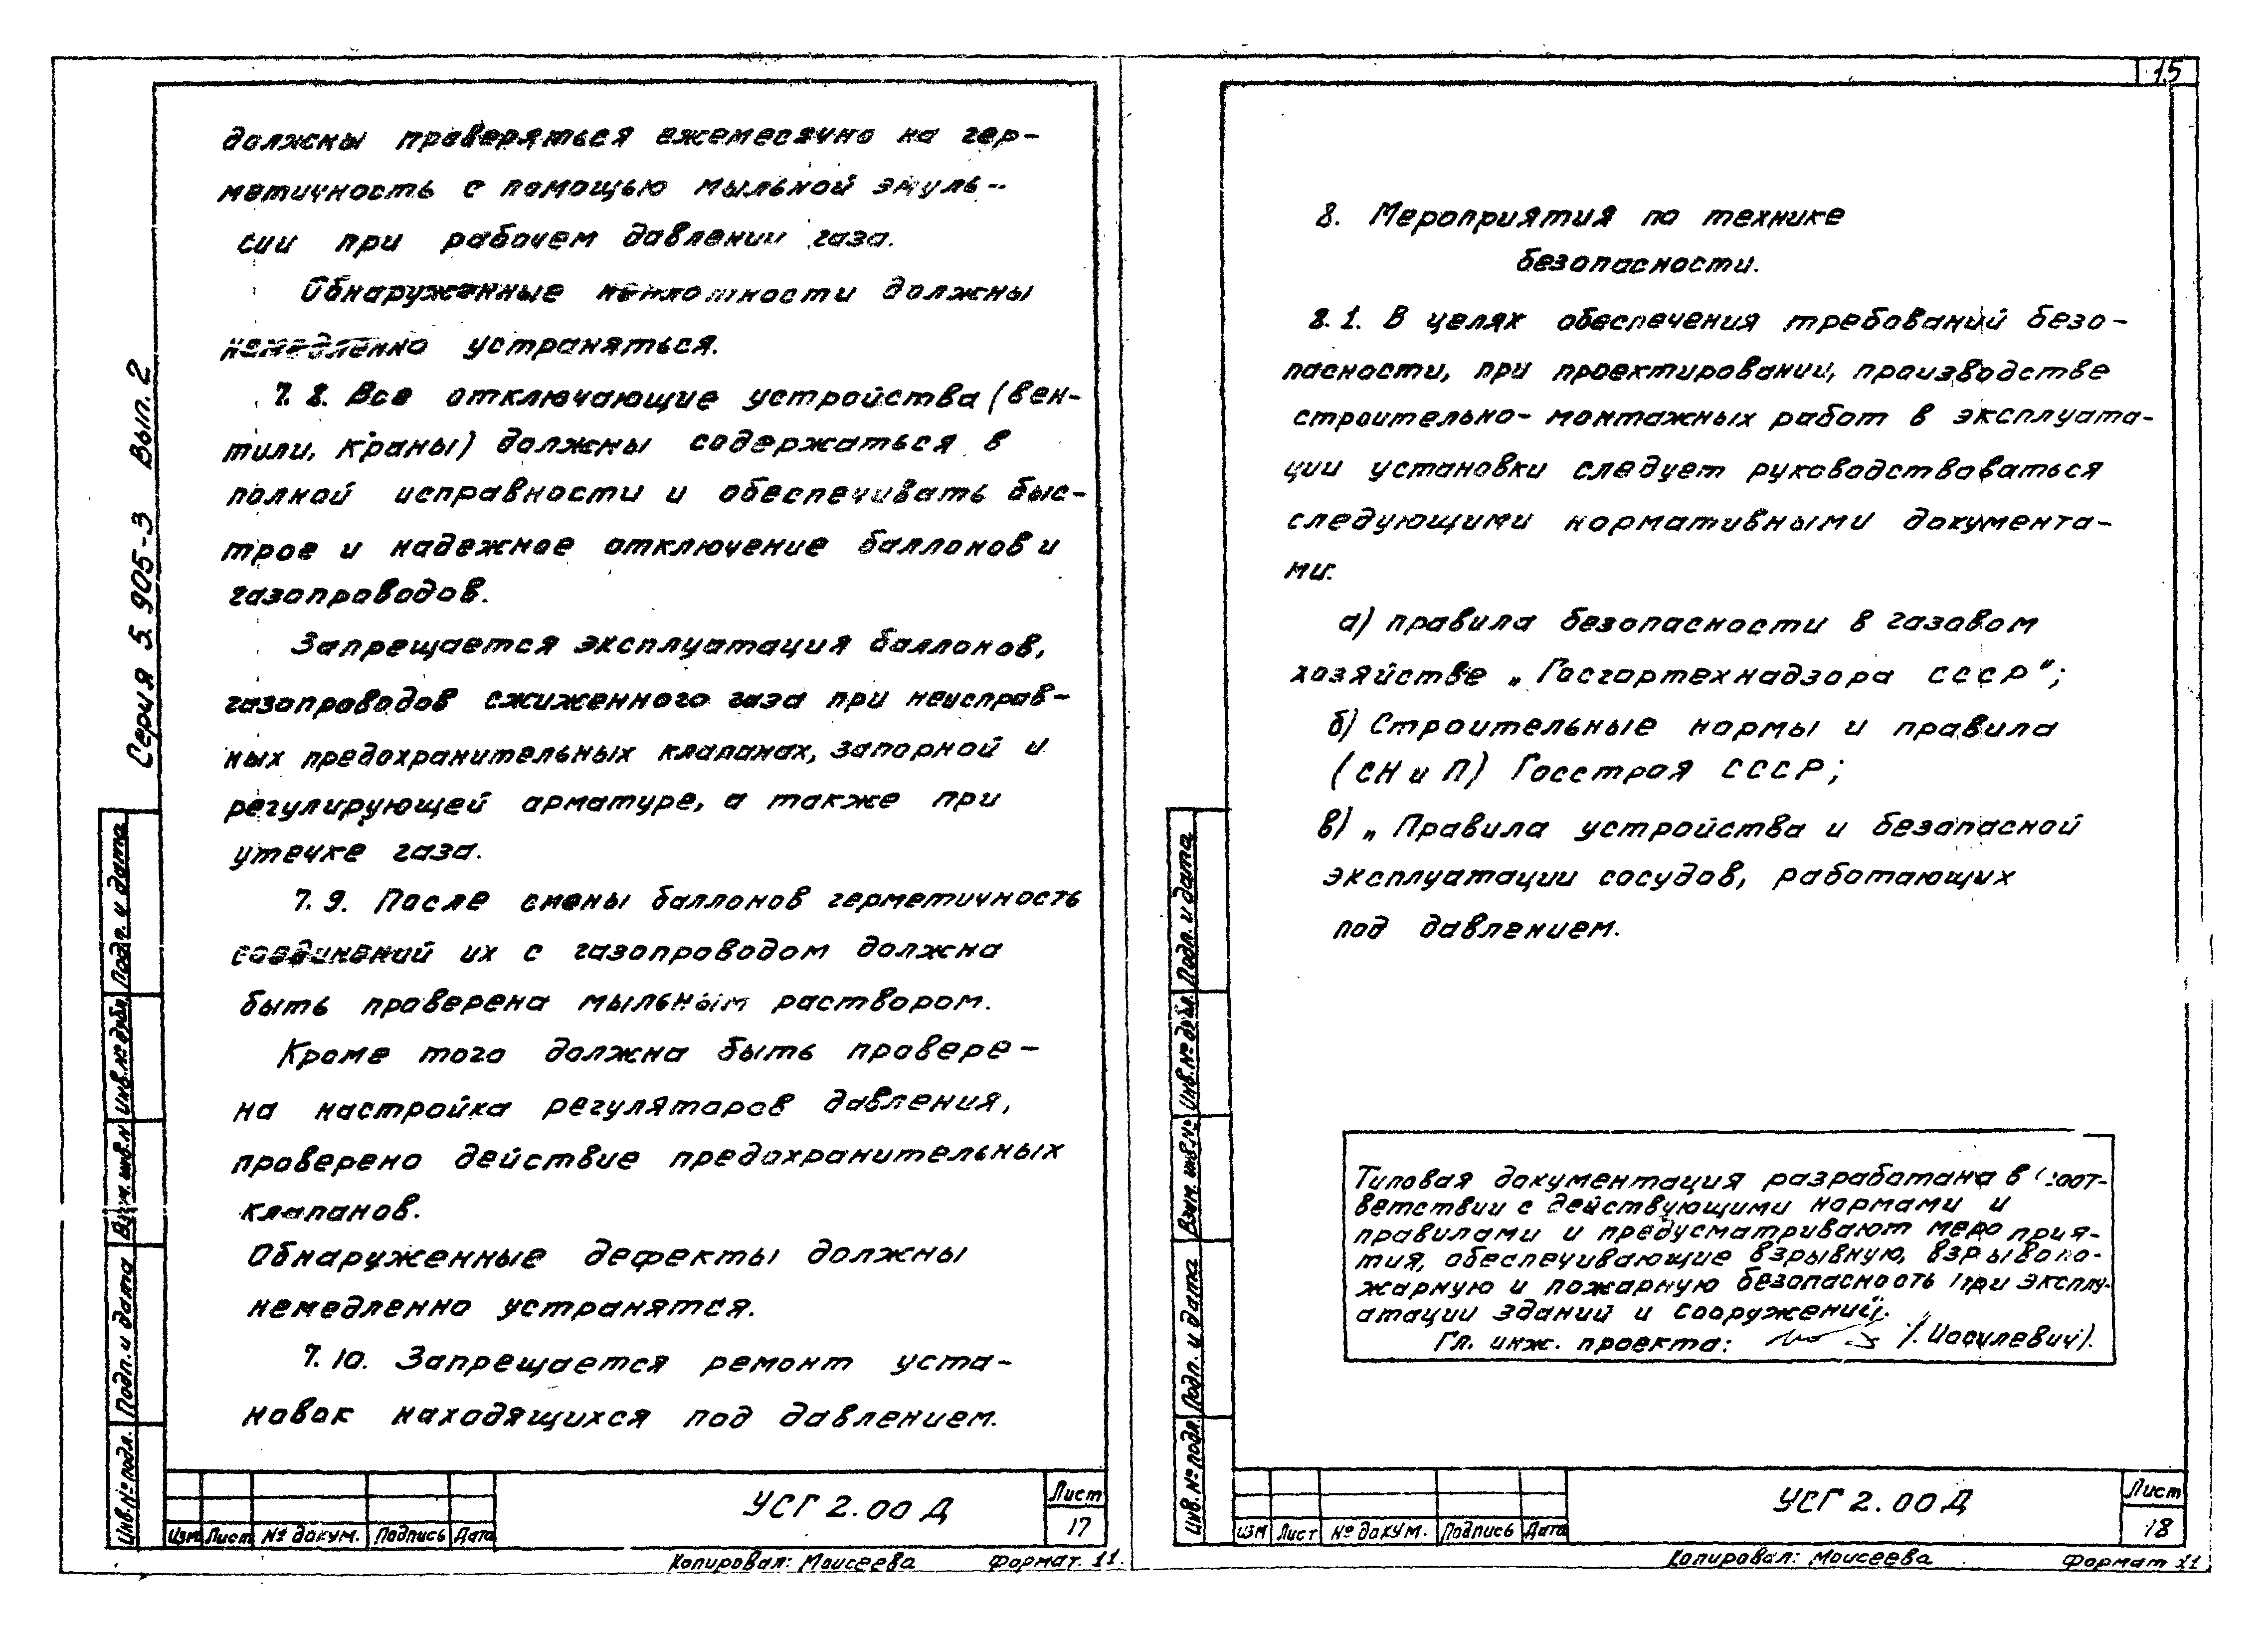 должны проверяться ежемесячно на гер-
метичность с помощью мыльной эмуль-
сии при рабочем давлении газа.
Обнаруженные неплотности должны
немедленно устраняться.
7.8. Все отключающие устройства (вен-
тили, краны) должны содержаться в
полной исправности и обеспечивать быс-
трое и надежное отключение баллонов и
газопроводов.
Запрещается эксплуатация баллонов,
газопроводов сжиженного газа при неисправ-
ных предохранительных клапанах, запорной и
регулирующей арматуре, а также при
утечке газа.
7.9. После смены баллонов герметичность
соединений их с газопроводом должна
быть проверена мыльным раствором.
Кроме того должна быть провере-
на настройка регуляторов давления,
проверено действие предохранительных
клапанов.
Обнаруженные дефекты должны
немедленно устранятся.
7.10. Запрещается ремонт уста-
новок находящихся под давлением.
Серия 5.905-3 Вып. 2
Подп. и дата
Инв.№ дубл.
Взам. инв.н
Подп. и дата
Инв.№ подл.
Изм Лист № докум. Подпись Дата
УСГ 2.00 Д
Лист
17
Копировал: Моисеева Формат 11.
15
8. Мероприятия по технике
безопасности.
8.1. В целях обеспечения требований безо-
пасности, при проектировании, производстве
строительно-монтажных работ в эксплуата-
ции установки следует руководствоваться
следующими нормативными документа-
ми:
а) правила безопасности в газовом
хозяйстве „Госгортехнадзора СССР";
б) Строительные нормы и правила
(СН и П) Госстроя СССР;
в) „Правила устройства и безопасной
эксплуатации сосудов, работающих
под давлением.
Типовая документация разработана в соот-
ветствии с действующими нормами и
правилами и предусматривают меро прия-
тия, обеспечивающие взрывную, взрывопо-
жарную и пожарную безопасность при эксплу-
атации зданий и сооружений.
Гл. инж. проекта: /. Иосилевич/.
Подп. и дата
Инв.№ дубл.
Взам. инв№
Подп. и дата
Инв.№ подл.
Изм Лист № докум. Подпись Дата
УСГ 2.00 Д
Лист
18
Копировал: Моисеева Формат 11